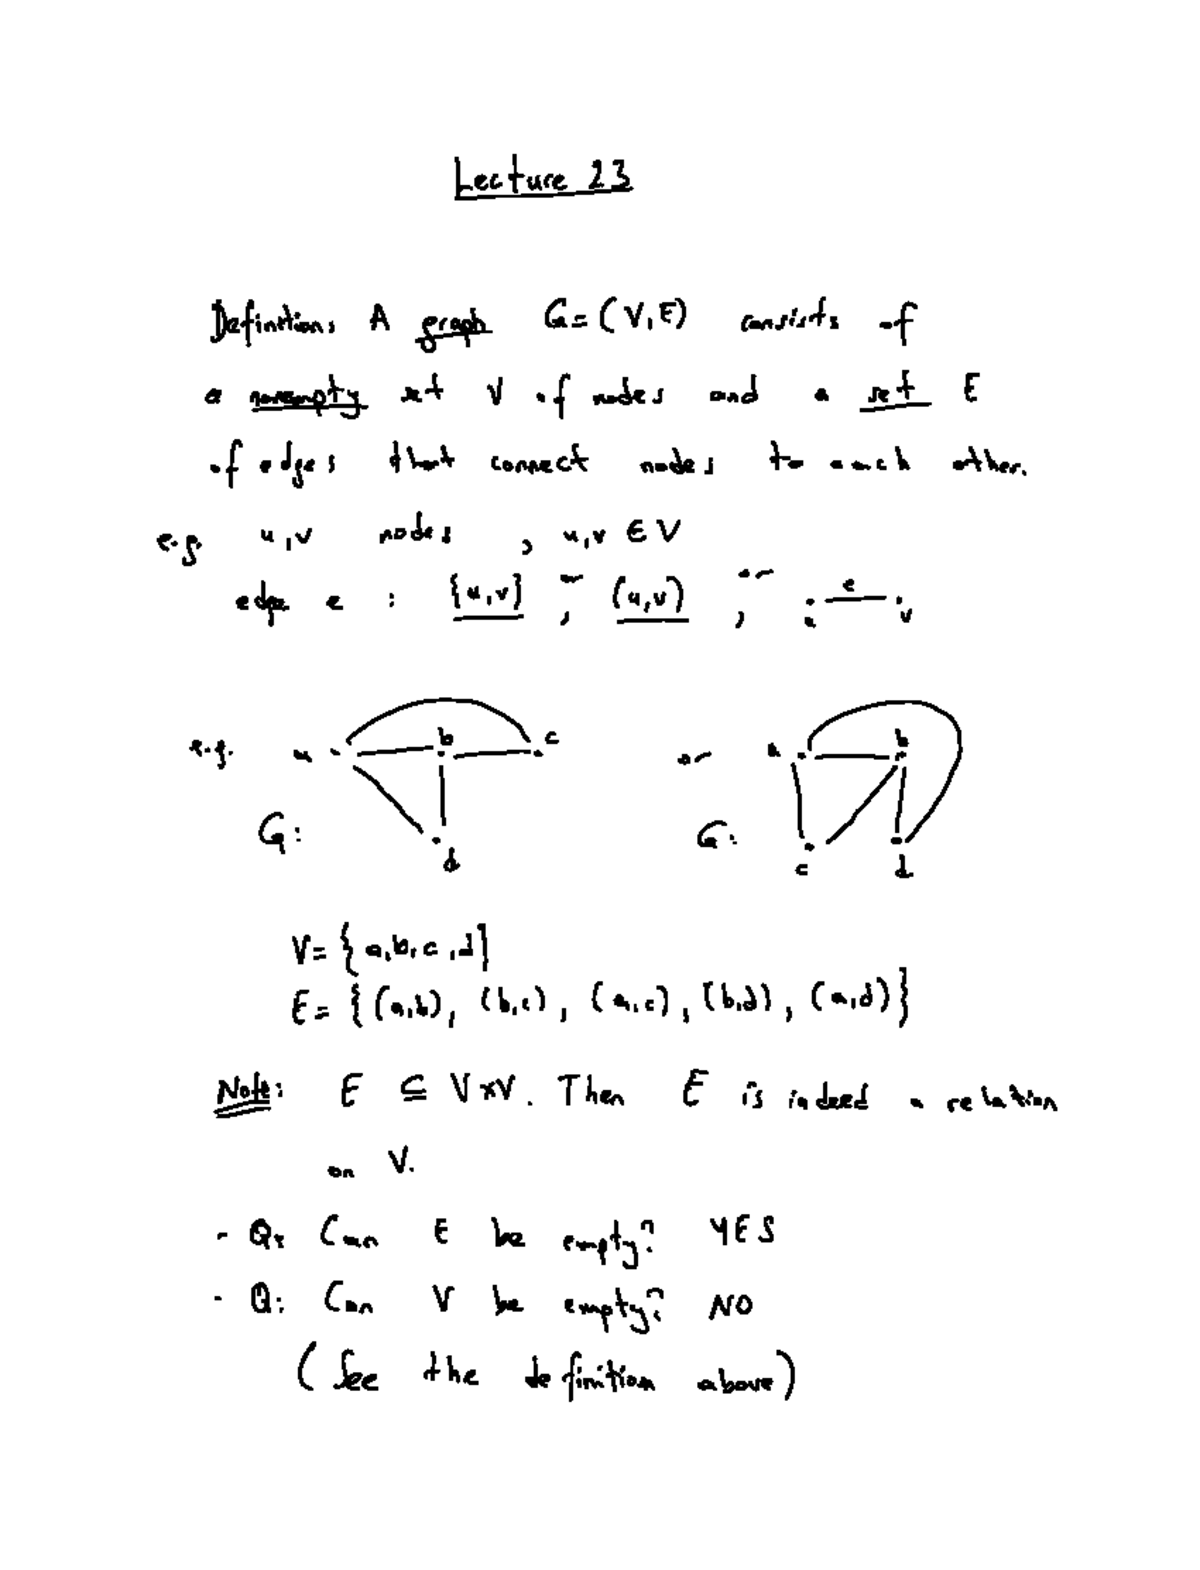 Lecture 23
Definition: A graph G=(V,E) consists of
a nonempty set V of nodes and a set E
of edges that connect nodes to each other.
e.g. u,v nodes , u,v ∈ V
edge e : {u,v} or, (u,v) or, u e v
e.g. a b c d or a b c d
G: G:
V={a,b,c,d}
E={(a,b), (b,c), (a,c), (b,d), (a,d)}
Note: E ⊆ V×V. Then E is indeed a relation
on V.
- Q: Can E be empty? YES
- Q: Can V be empty? NO
(See the definition above)